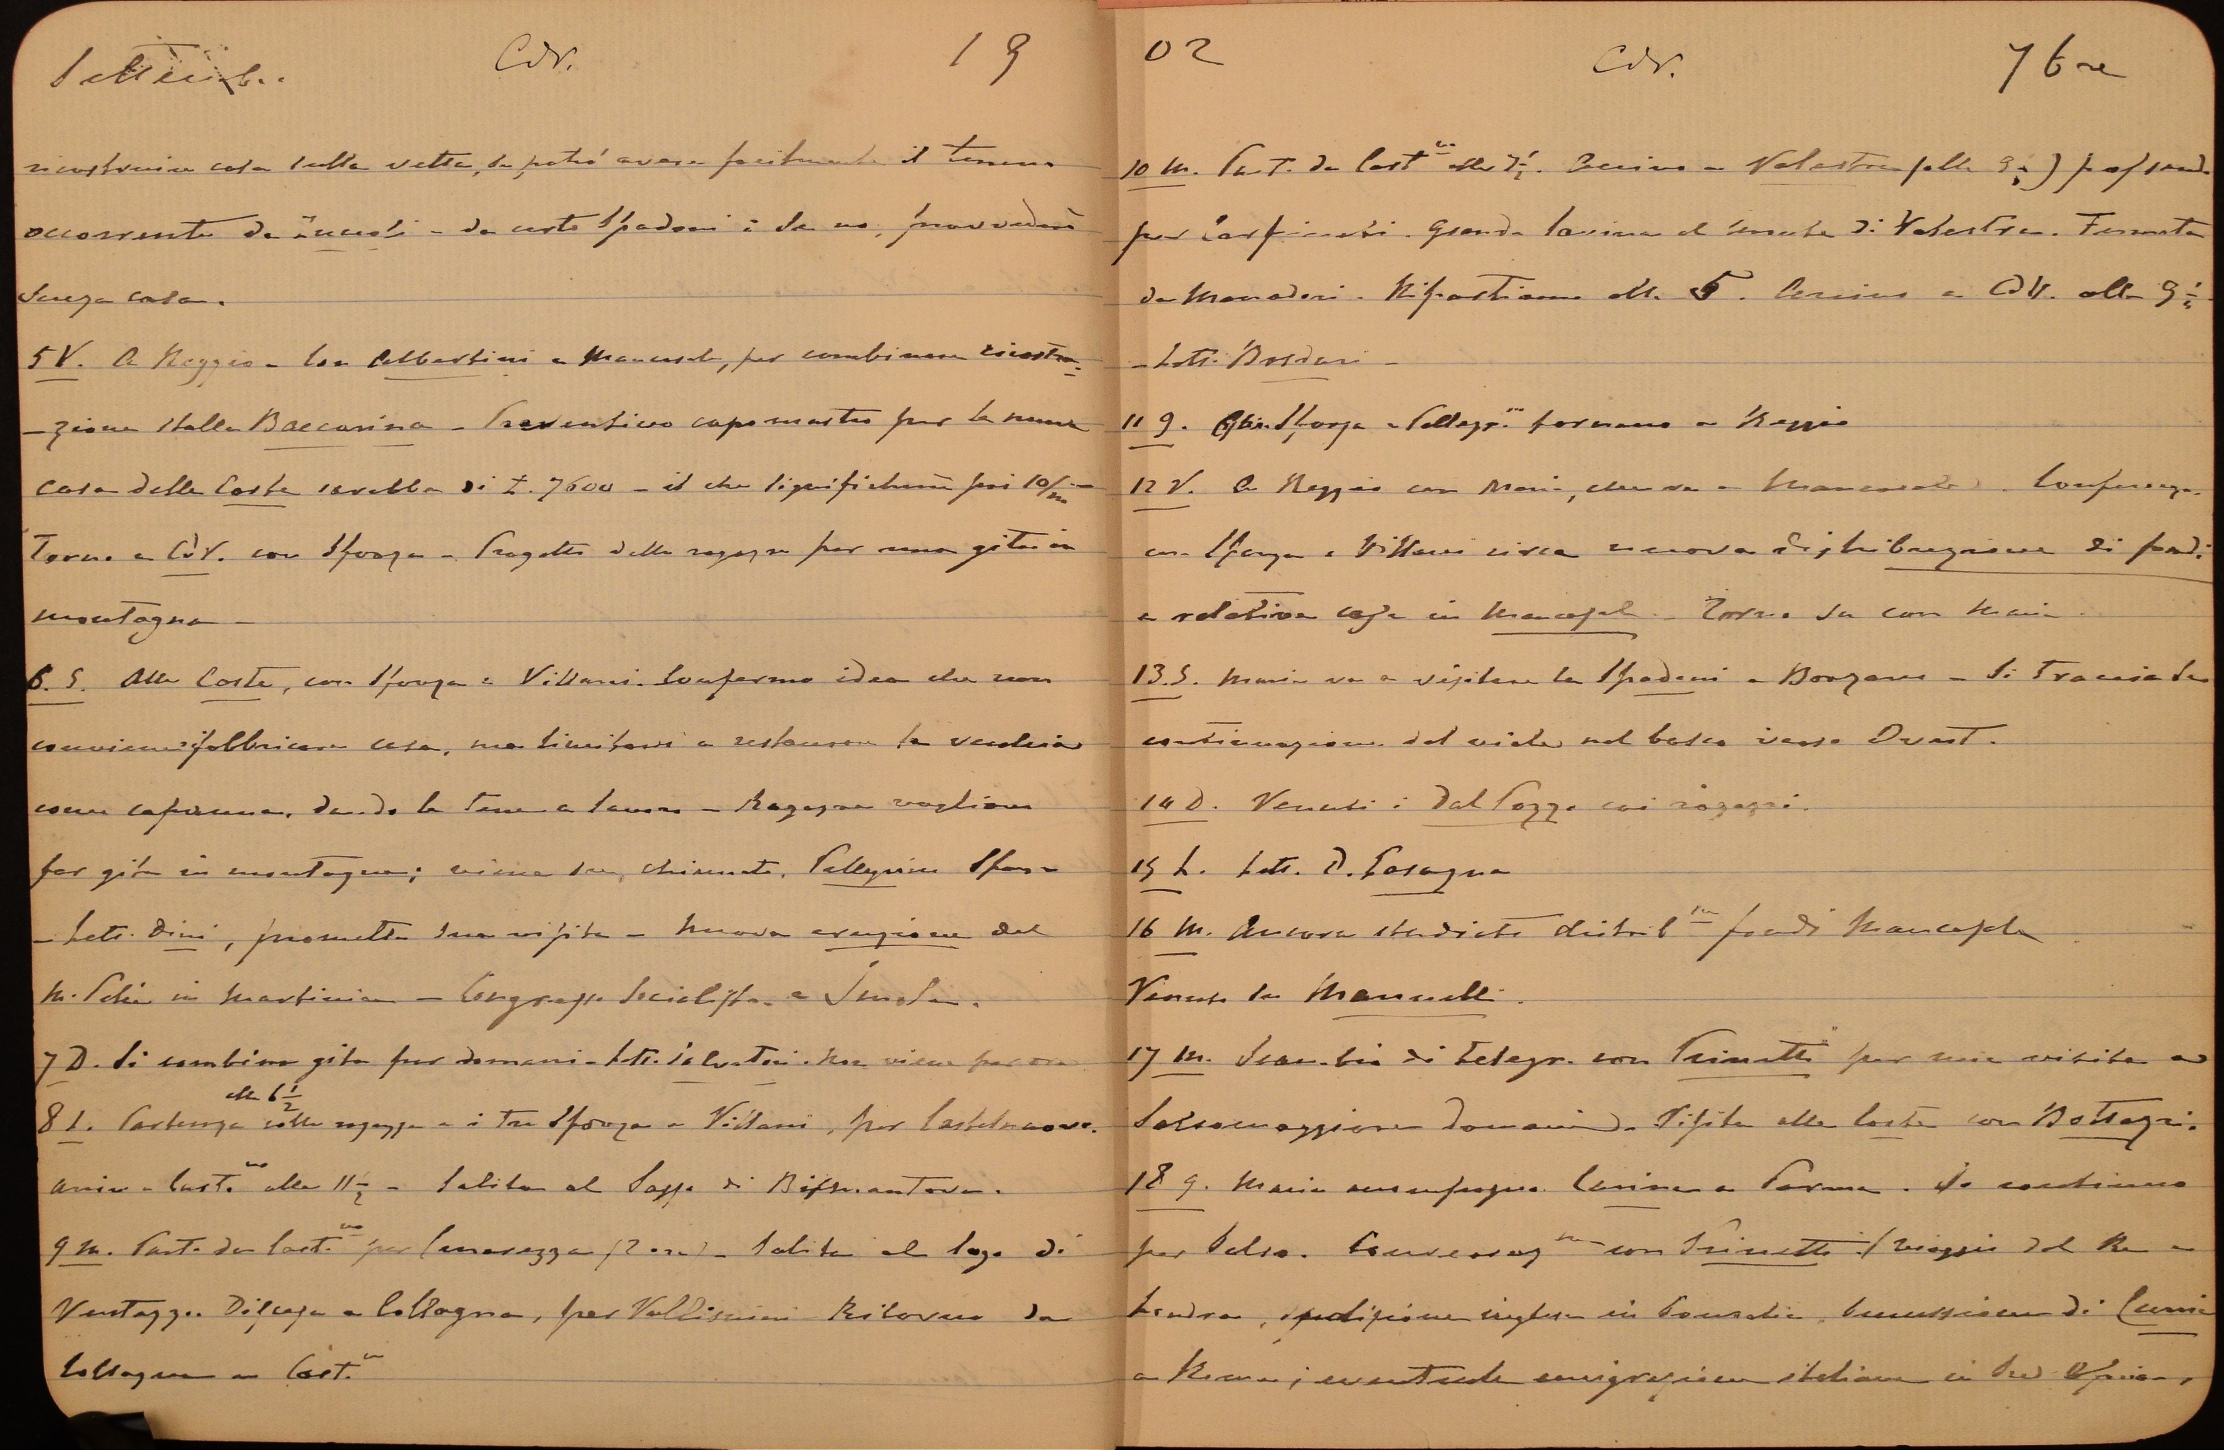 Settemb. CdV. 19
ricostruire casa sulla vetta, se potrò avere facilmente il terreno
occorrente da - da certo Spadoni : Se no, provvederò
senza casa.
5 V. A Reggio - Con Albertini a Mancasale, per combinare ricostru-
-zione stalla Baccarina - Preventivo capomastro per la nuova
casa delle Coste sarebbe di L. 7600 - il che significherà poi 10/m
Torno a CdV. con Sforza - Progetti delle ragazze per una gita in
montagna -
6. S. Alle Coste, con Sforza e Villani. Confermo idea che non
conviene fabbricare casa, ma limitarsi a restaurare la vecchia
come capanna, dando la terra a lavoro - Ragazze vogliono
far gita in montagna; viene su, chiamato, Pellegrino Sforza
- Lett. Dini, promette sua visita - Nuova eruzione del
M. Pelée in Martinica - Congresso Socialista a Imola.
7 D. Si combina gita per domani - Lett. Salvatori. Non viene per ora
alle 6 1/2
8 L. Partenza colle ragazze e i tre Sforza e Villani, per Castelnuovo.
Arrivo a Cast.no alle 11 1/2 - Salita al Sasso di Bismantova.
9 M. Part. da Cast.no per Cinerezza (2 ore) - Salita al lago di
Ventasso. Discesa a Collagna, per Vallisnieri - Ritorno da
Collagna a Cast.no
02 CdV. 7bre
10 M. Part. da Cast.no alle 7 1/2. Arrivo a Valestra (alle 9 1/2) passando
per Carpineti. Grande lavina al monte di Valestra. Fermata
da Manodori. Ripartiamo alle 5. Arrivo a CdV. alle 9 1/2
- Lett. Bosdari -
11 G. Sforza e Pellegr.no tornano a Reggio
12 V. A Reggio con Maria, che va a Mancasale. Conferenza
con Sforza e Villani circa nuova distribuzione di fondi
e relative case in Mancasale - Torno su con Maria.
13. S. Maria va a visitare la Spadoni a Borzano - Si traccia la
continuazione del viale nel bosco verso Ovest.
14 D. Venuti i Dal Pozzo coi ragazzi.
15 L. Lett. D. Pasagna
16 M. Ancora studiato distrib.ne fondi Mancasale
Venuto su Mannelli.
17 M. Scambio di telegr. con Prinetti per mia visita a
Salsomaggiore domani. Visita alle Coste con Bottazzi.
18 G. Maria accompagna Corinna a Parma. Io continuo
per Salso. Conversaz.ne con Prinetti (viaggio del Re a
Londra, spedizione inglese in Somalia, Commissione di
a Roma; eventuale emigrazione italiana in Sud Africa,